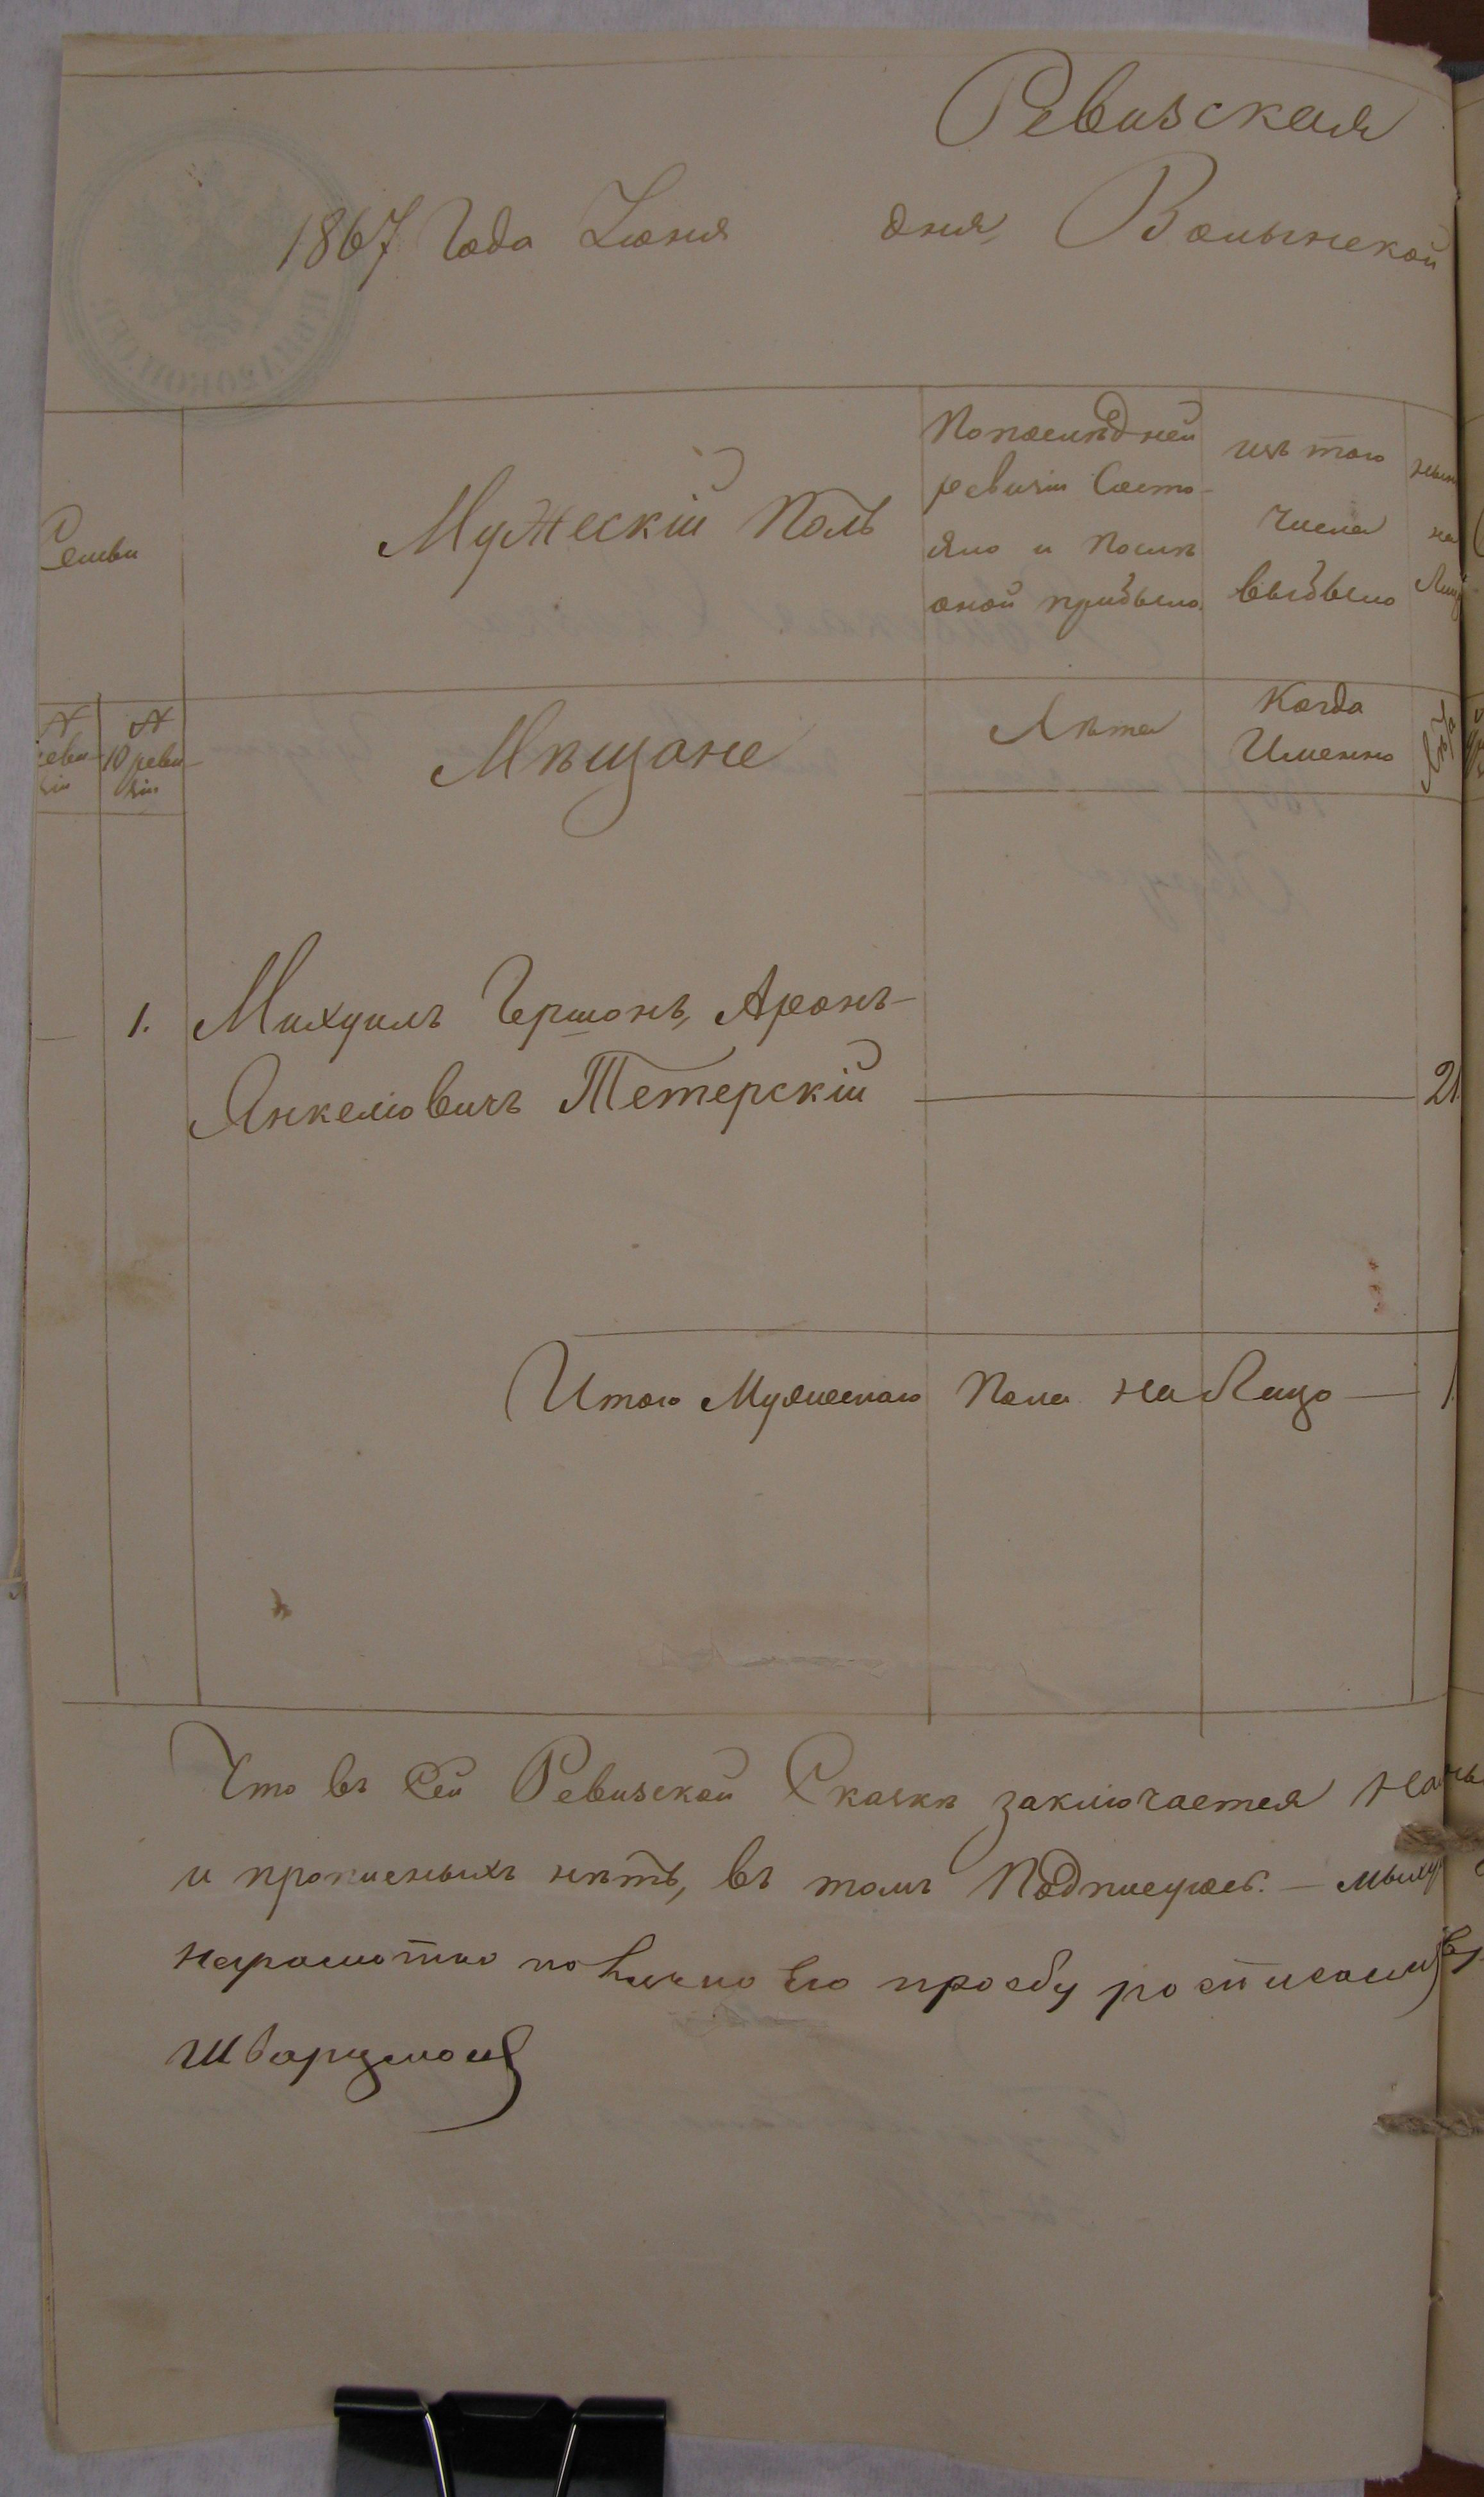 Ревизская
1867 Года Июня дня, Волынской
Семьи
Мужескій Полъ
По последней
ревизіи Состо-
яло и После
оной прибыло
изъ того
числа
выбыло
ныне
на
Лицо
№
реви-
зіи
№
10 реви-
зіи
Мѣщане
Лѣта
Когда
Именно
Лѣта
1. Михуилъ Гершонъ, Аронъ-
Янкеліовичъ Тетерскій 21.
Итого Мужескаго Пола на Лицо — 1.
Что въ Сей Ревизской Сказкѣ заключается
и прописныхъ нѣтъ, въ томъ Подписуюсь. —
неграмотно по Лично Его прозбу росписался
Шварцман